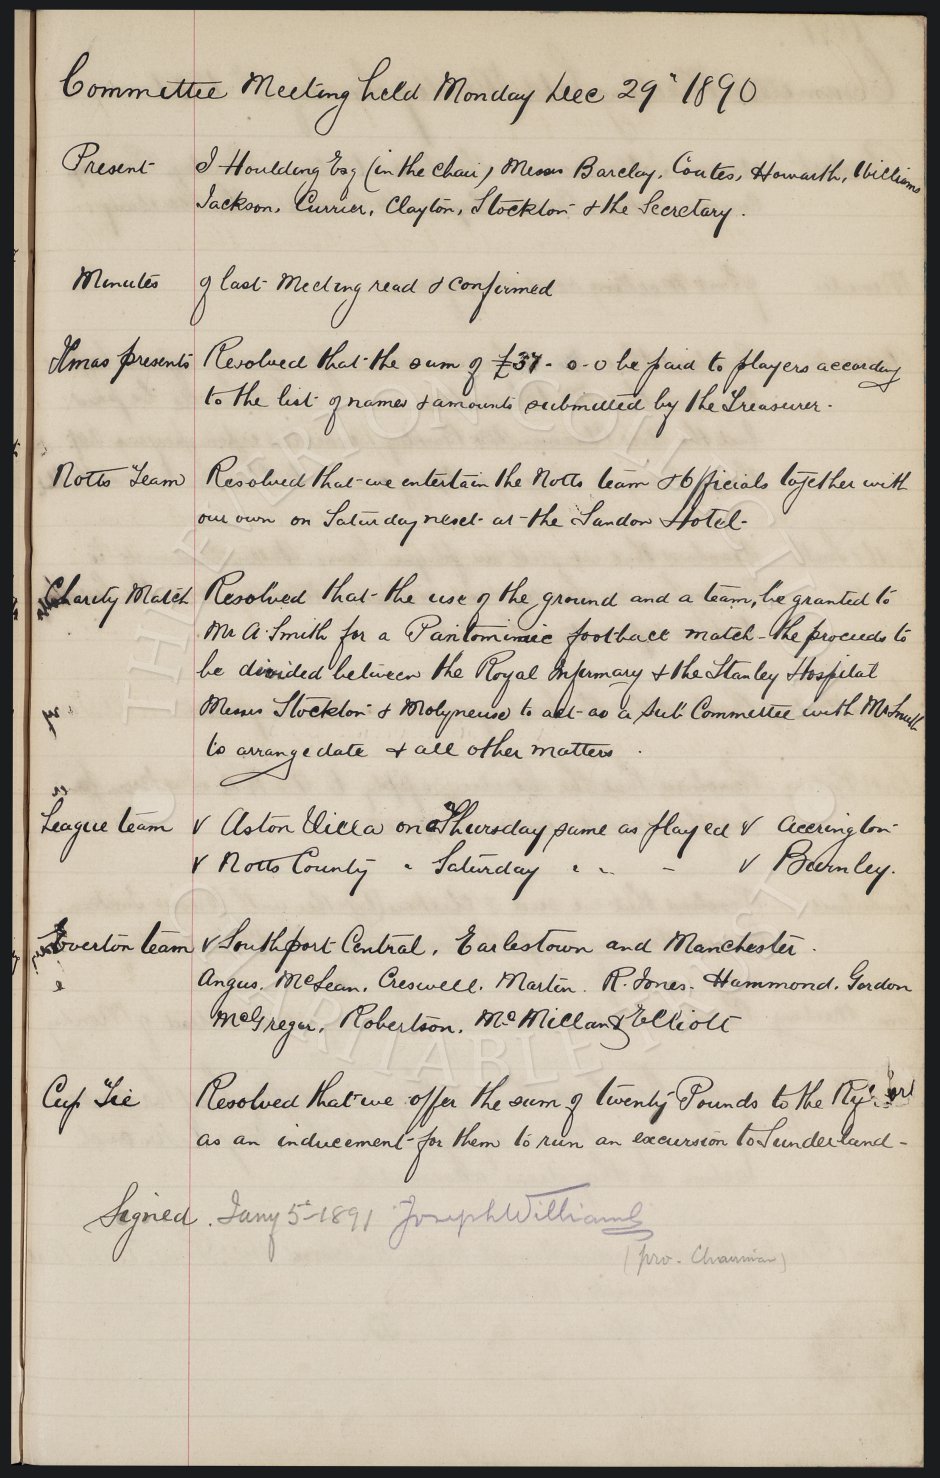 Committee Meeting held Monday Dec 29" 1890
Present J Houlding Esq (in the chair) Messrs Barclay, Coates, Howarth, Williams
Jackson, Currier, Clayton, Stockton & the Secretary.
Minutes of last Meeting read & confirmed
Xmas presents Resolved that the sum of £37-0-0 be paid to players according
to the list of names & amounts submitted by the Treasurer.
Notts Team Resolved that we entertain the Notts team & Officials together with
our own on Saturday next at the Sandon Hotel.
Charity Match Resolved that the use of the ground and a team, be granted to
Mr A. Smith for a Pantomimic football match - the proceeds to
be divided between the Royal Infirmary & the Stanley Hospital
Messrs Stockton & Molyneux to act as a Sub Committee with Mr Smith
to arrange date & all other matters.
League team v Aston Villa on Thursday same as played v Accrington
v Notts County " Saturday " " - v Burnley.
Everton team v Southport Central, Earlestown and Manchester.
Angus, McLean, Creswell, Martin, R. Jones, Hammond, Gordon
McGregor, Robertson, McMillan & Elliott
Cup Tie Resolved that we offer the sum of twenty Pounds to the Ry
as an inducement for them to run an excursion to Sunderland -
Signed. Jany 5th 1891 Joseph Williams
(pro. Chairman)
THE EVERTON COLLECTION
CHARITABLE TRUST